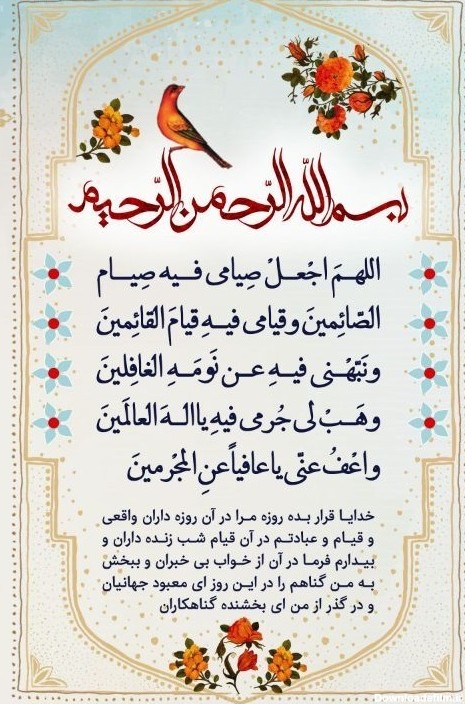 بسم الله الرحمن الرحیم
اللهمَ اجْعلْ صِیامی فیه صِیام
الصّائِمینَ وقیامی فیهِ قیامَ القائِمینَ
ونَبّهْنی فیهِ عن نَومَهِ الغافِلینَ
وهَبْ لی جُرمی فیهِ یااله العالَمینَ
واعْفُ عنّی یاعافیاً عنِ المُجْرمینَ
خدایا قرار بده روزه مرا در آن روزه داران واقعی
و قیام و عبادتم در آن قیام شب زنده داران و
بیدارم فرما در آن از خواب بی خبران و ببخش
به من گناهم را در این روز ای معبود جهانیان
و در گذر از من ای بخشنده گناهکاران